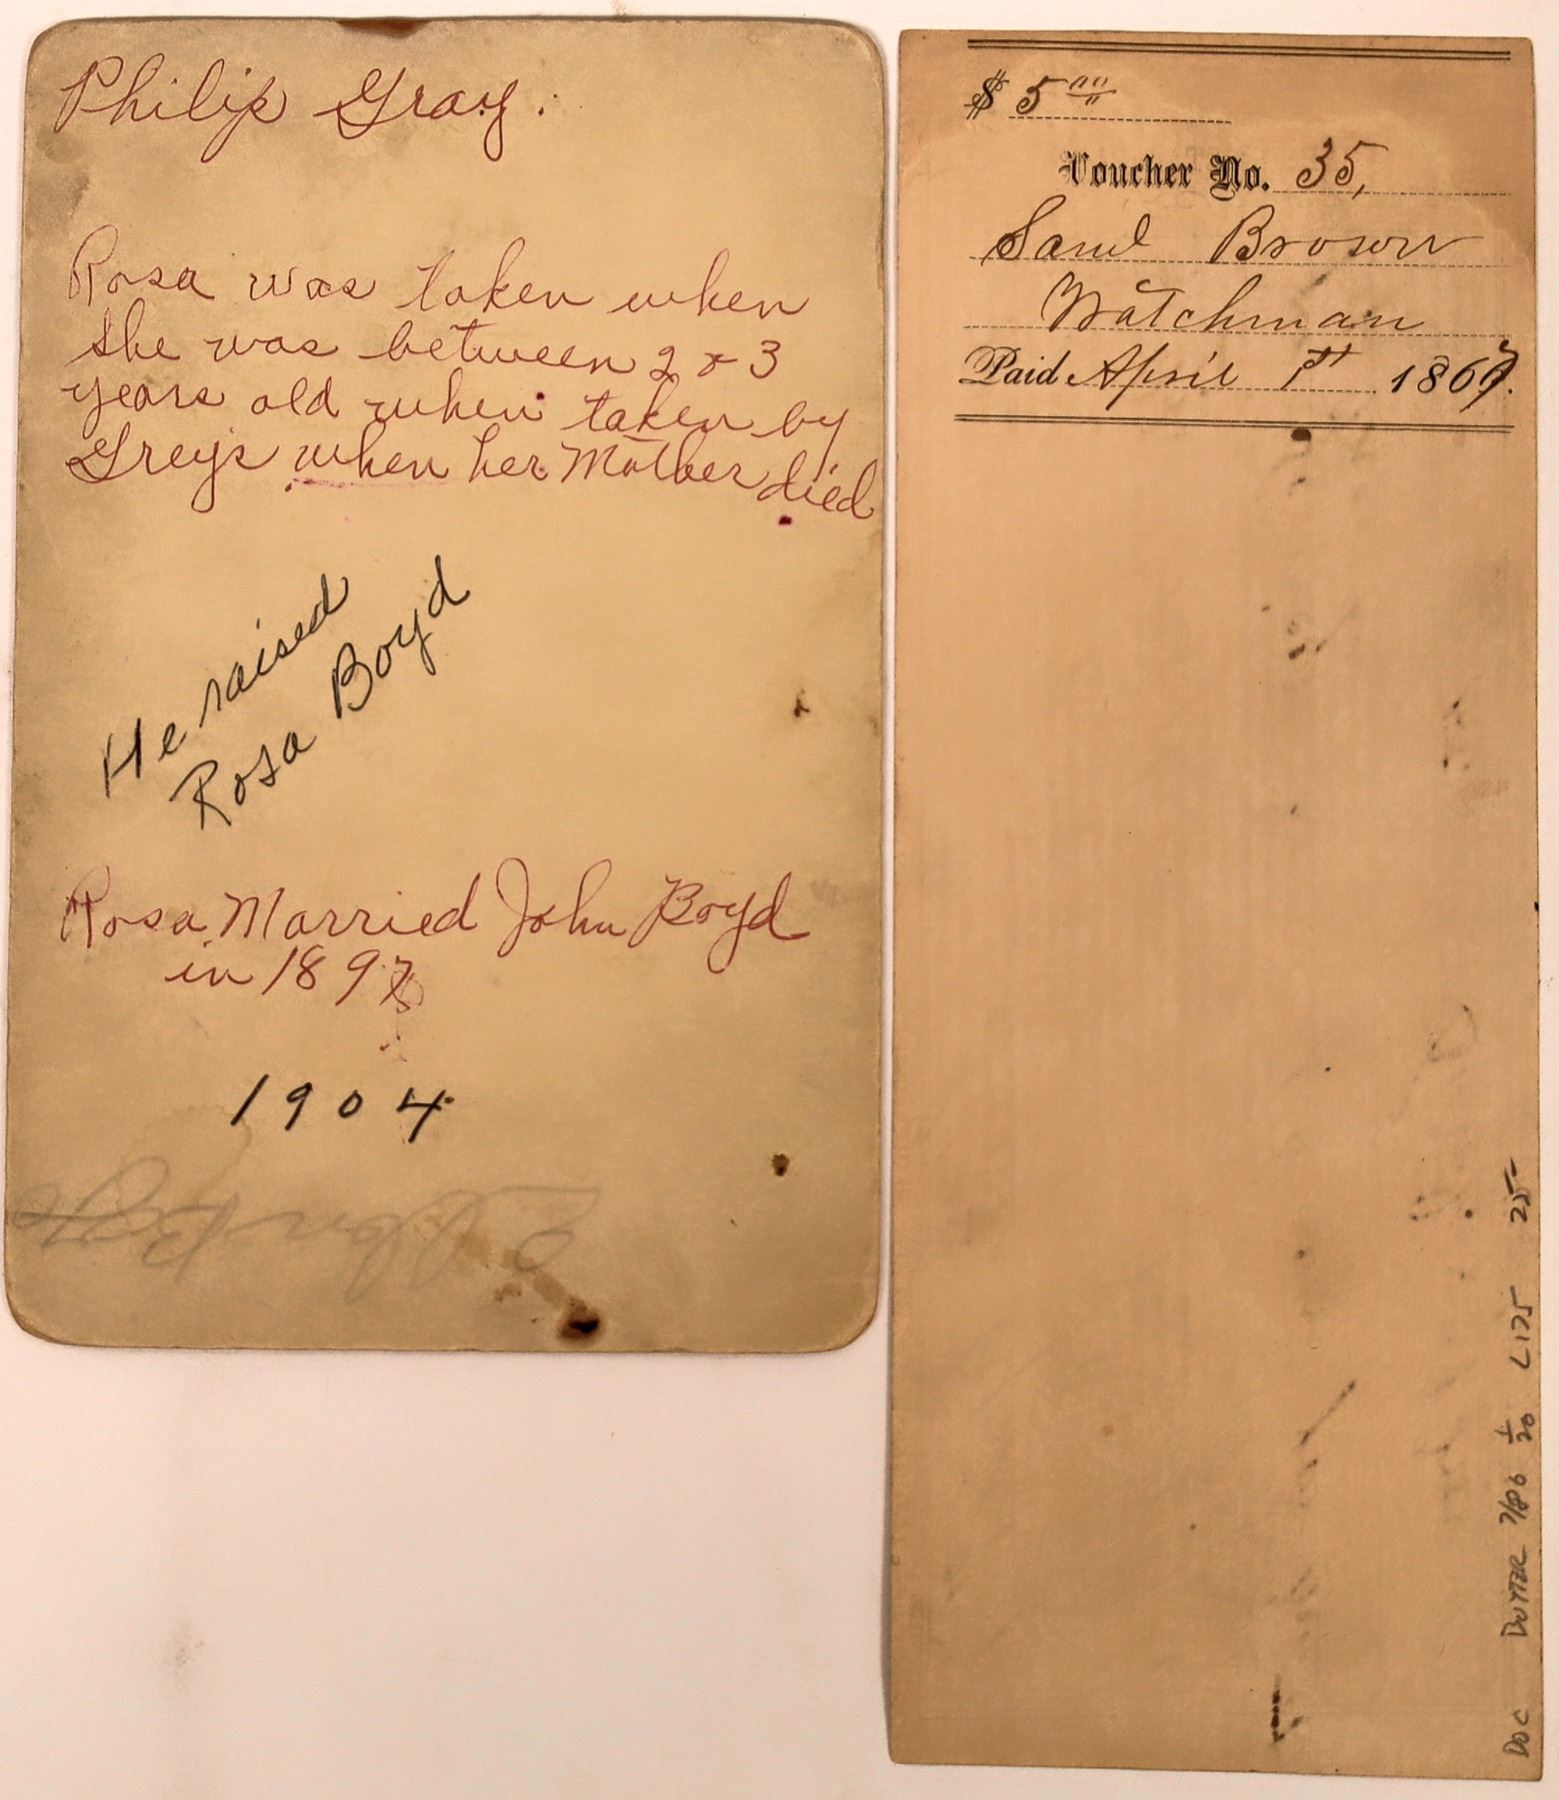 Philip Gray.
Rosa was taken when
she was between 2 & 3
years old when taken by
Grey's when her Mother died
He raised
Rosa Boyd
Rosa Married John Boyd
in 1897
1904
$ 5 00
Voucher No. 35,
Saml Brown
Watchman
Paid April 1st 1867.
DOC 7/86 1/20 L175 25-